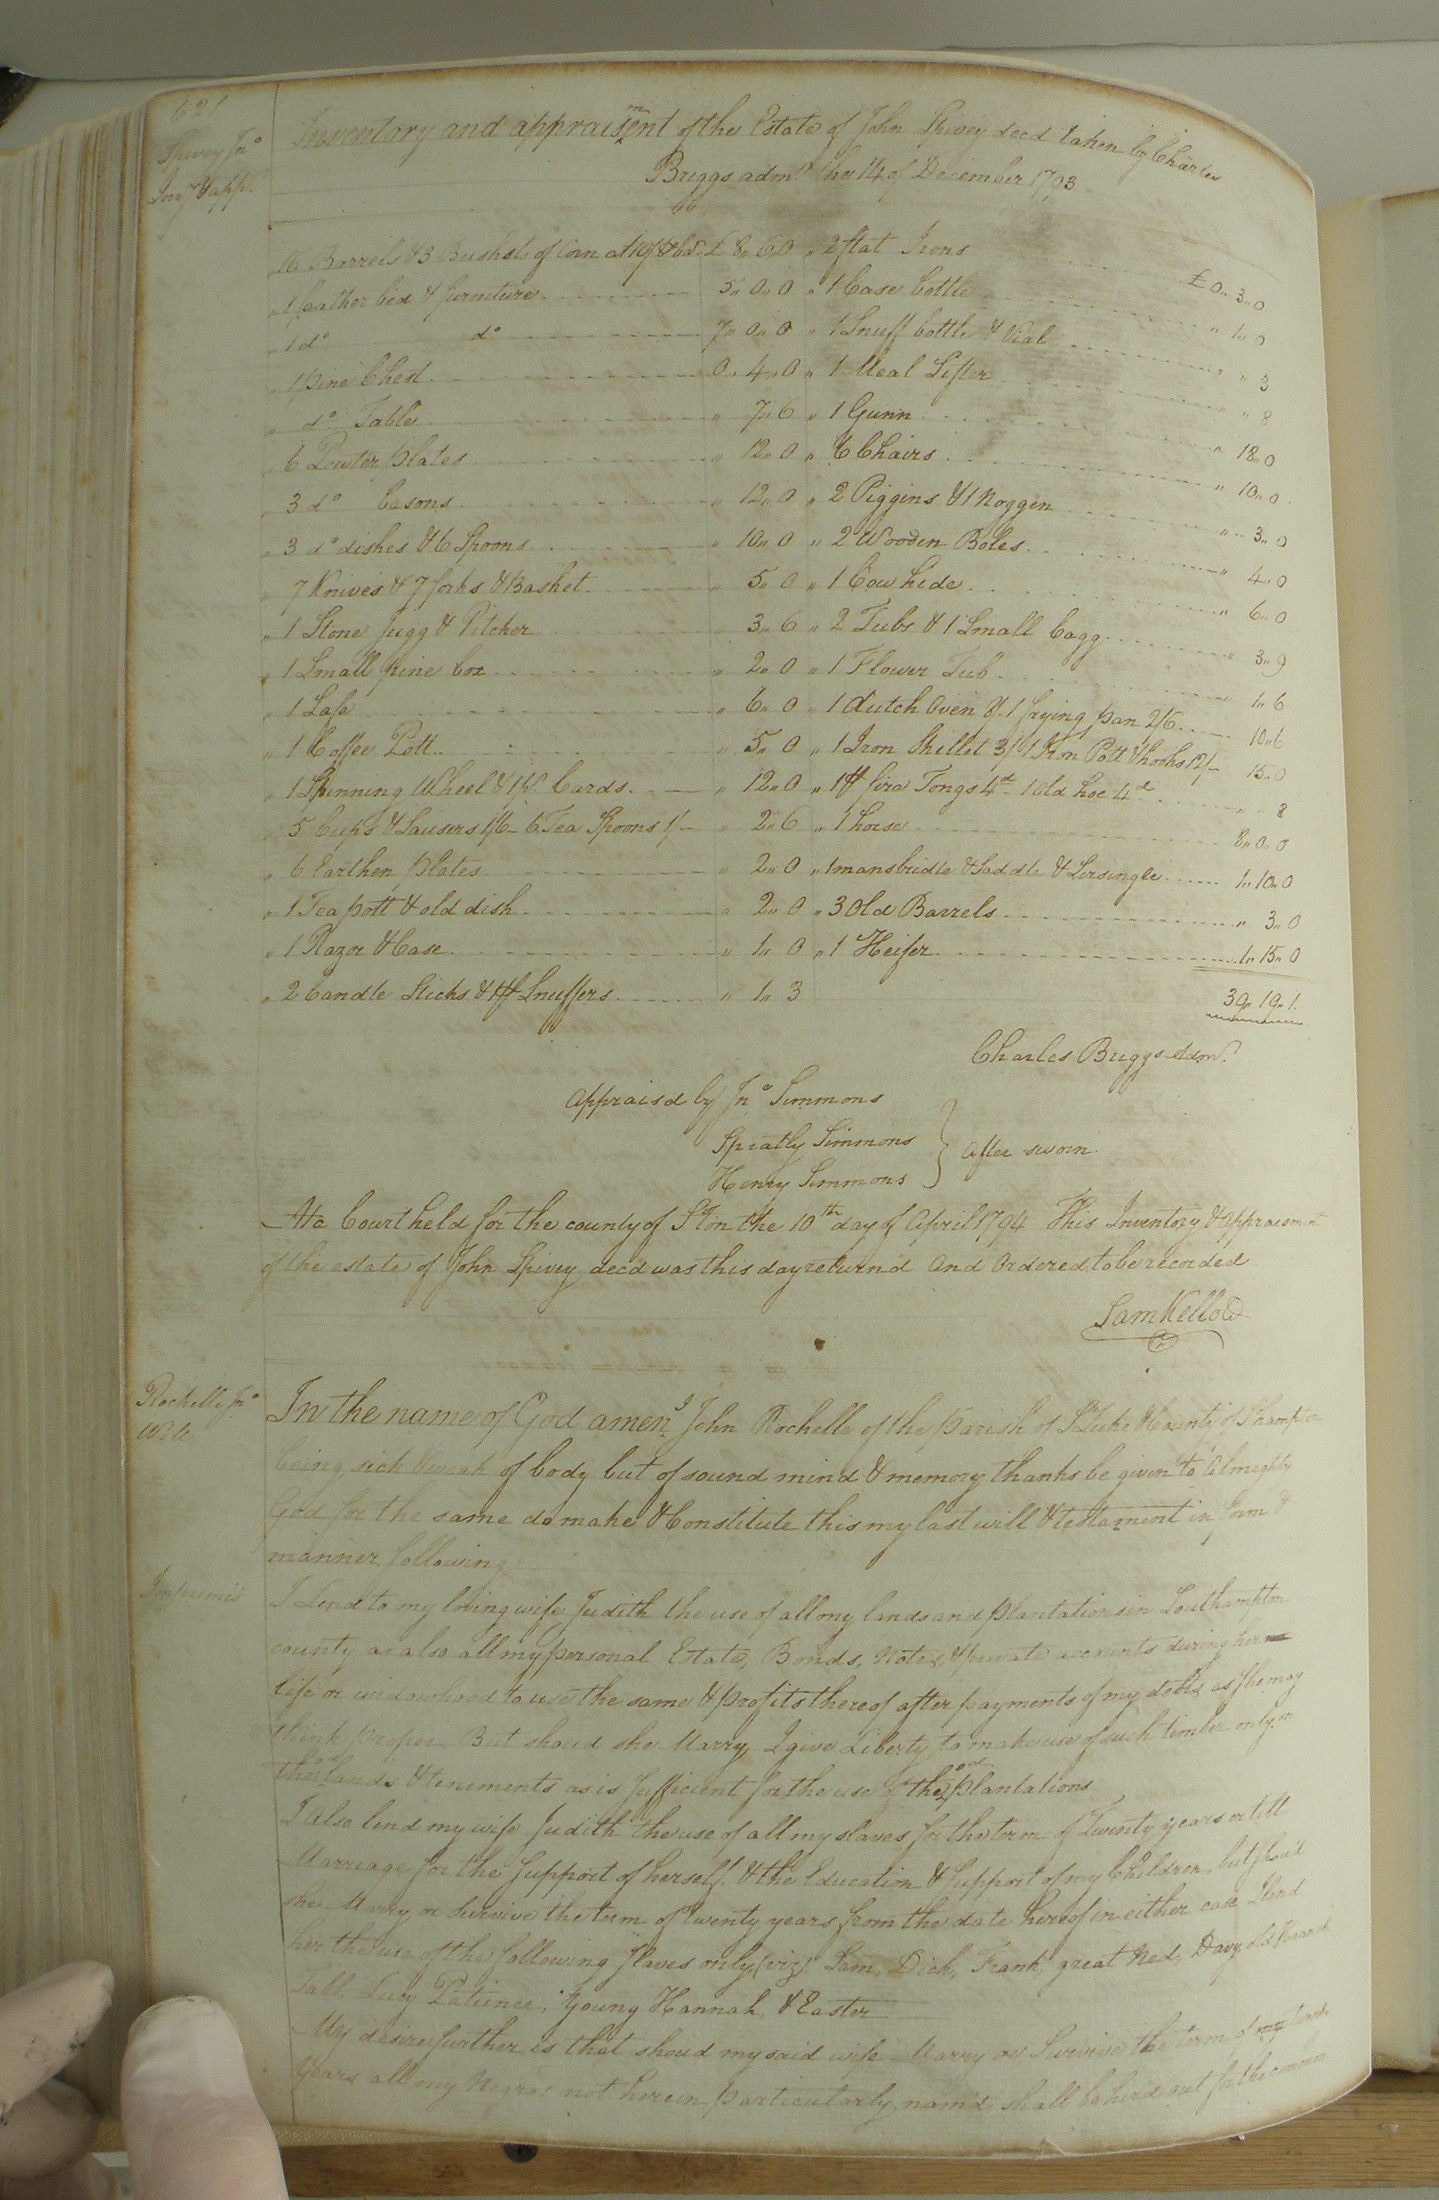 621
Spivey Jno
Invy & appt
Inventory and appraisment of the Estate of John Spivey decd taken by Charles
Briggs admr the 14 of December 1793
16 Barrels & 3 Bushels of Corn at 10/ £ 8,, 6,, 0
1 feather bed & furniture 5,, 0,, 0
1 do do 7,, 0,, 0
1 pine Chest 0,, 4,, 0
" do Table " 7,, 6
6 Pewter plates " 12,, 0
3 do basons " 12,, 0
3 do dishes & 6 Spoons " 10,, 0
7 Knives & 7 forks & Basket " 5,, 0
1 Stone Jugg & Pitcher " 3,, 6
1 Small pine box " 2,, 0
1 Safe " 6,, 0
1 Coffee Pott " 5,, 0
1 Spinning Wheel & 1 pr. Cards " 12,, 0
5 Cups & Sausers 1/6 - 6 Tea Spoons 1/- " 2,, 6
6 Earthen plates " 2,, 0
1 Tea pott & old dish " 2,, 0
1 Razor & Case " 1,, 0
2 Candle Sticks & 1 pr Snuffers " 1,, 3
" 2 flat Irons £ 0,, 3,, 0
" 1 Case bottle " 1,, 0
" 1 Snuff bottle & Vial " " 3
" 1 Meal Sifter " " 8
" 1 Gunn " 18,, 0
" 6 Chairs " 10,, 0
" 2 Piggins & 1 Noggen " 3,, 0
" 2 Wooden Boles " 4,, 0
" 1 Cow hide " 6,, 0
" 2 Tubs & 1 Small Cagg " 3,, 9
" 1 Flower Tub 1,, 6
" 1 dutch Oven 8/. 1 frying pan 2/6 10,, 6
" 1 Iron Skillet 3/ & 1 Iron Pott & hooks 12/- 15,, 0
" 1 pr fire Tongs 4d - 1 old hoe 4d " 8
" 1 horse 8,, 0,, 0
" 1 mans bridle & Saddle & Sirsingle 1,, 10,, 0
" 3 Old Barrels " 3,, 0
" 1 Heifer 1,, 15,, 0
39,, 19,, 1.
Charles Briggs Adm.r
Appraisd by Jno Simmons
Spratly Simmons } after sworn.
Henry Simmons
At a Court held for the county of Ston the 10th day of April 1794 This Inventory & appraisment
of the estate of John Spivey decd was this day returnd And Ordered to be recorded
Sam Kello
Rochelle Jno
Will
In the name of God amen, I John Rochelle of the Parish of St Luke & County of Shampton
being sick & weak of body but of sound mind & memory thanks be given to Almighty
God for the same do make & Constitute this my last will & testament in form &
manner following
Imprimis
I Lend to my loving wife Judith the use of all my lands and plantations in Southampton
county as also all my personal Estate, Bonds, Notes, & private accounts during her
life or widowhood to use the same & profits thereof after payments of my debts as she may
think proper But shoud she Marry, I give Liberty to make use of such timber only on
the sd lands & tenements as is sufficient for the use of the sd plantations
I Also lend my wife Judith the use of all my slaves for the term of Twenty years or till
Marriage for the Support of herself & the Education & Support of my Children, but shoud
she Marry or Survive the term of twenty years from the date hereof in either case I lend
her the use of the following slaves only (viz) Sam, Dick, Frank, great Ned, Davy old Hannah
Tabb Lucy Patience, Young Hannah, & Easter
My desire further is that shoud my said wife Marry or Survive the term of twenty
Years all my Negros not herein particularly named shall be hired out for the common